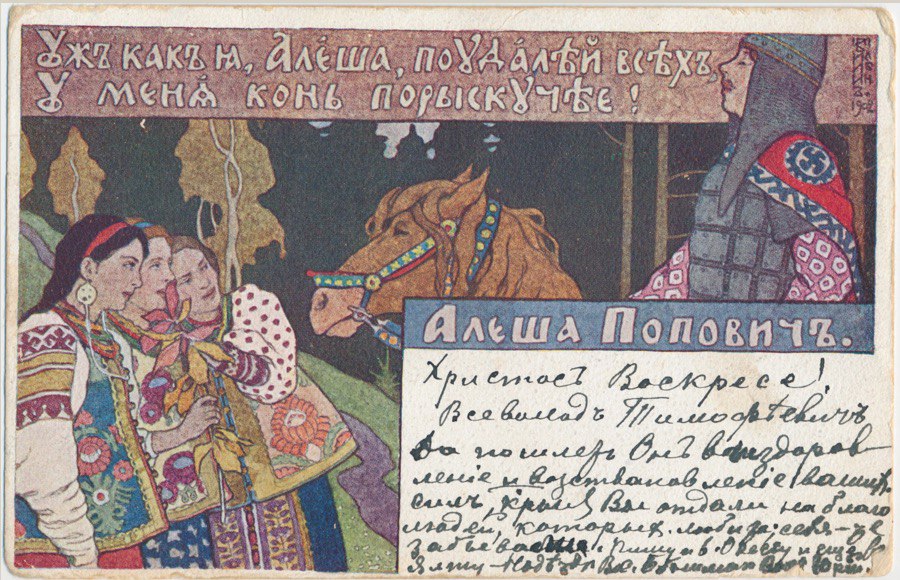 Ужъ какъ я, Алёша, поудалѣй всѣхъ,
У меня конь порыскучѣе!
Алеша Поповичъ.
Христосъ Воскресе!
Всеволодъ Тимофѣевичъ
да пошлетъ Онъ выздоров
леніе и возстановленіе вашихъ
силъ, Вы отдали на благо
людей, которыхъ любя себя
забывали. Пишу въ Одессу и